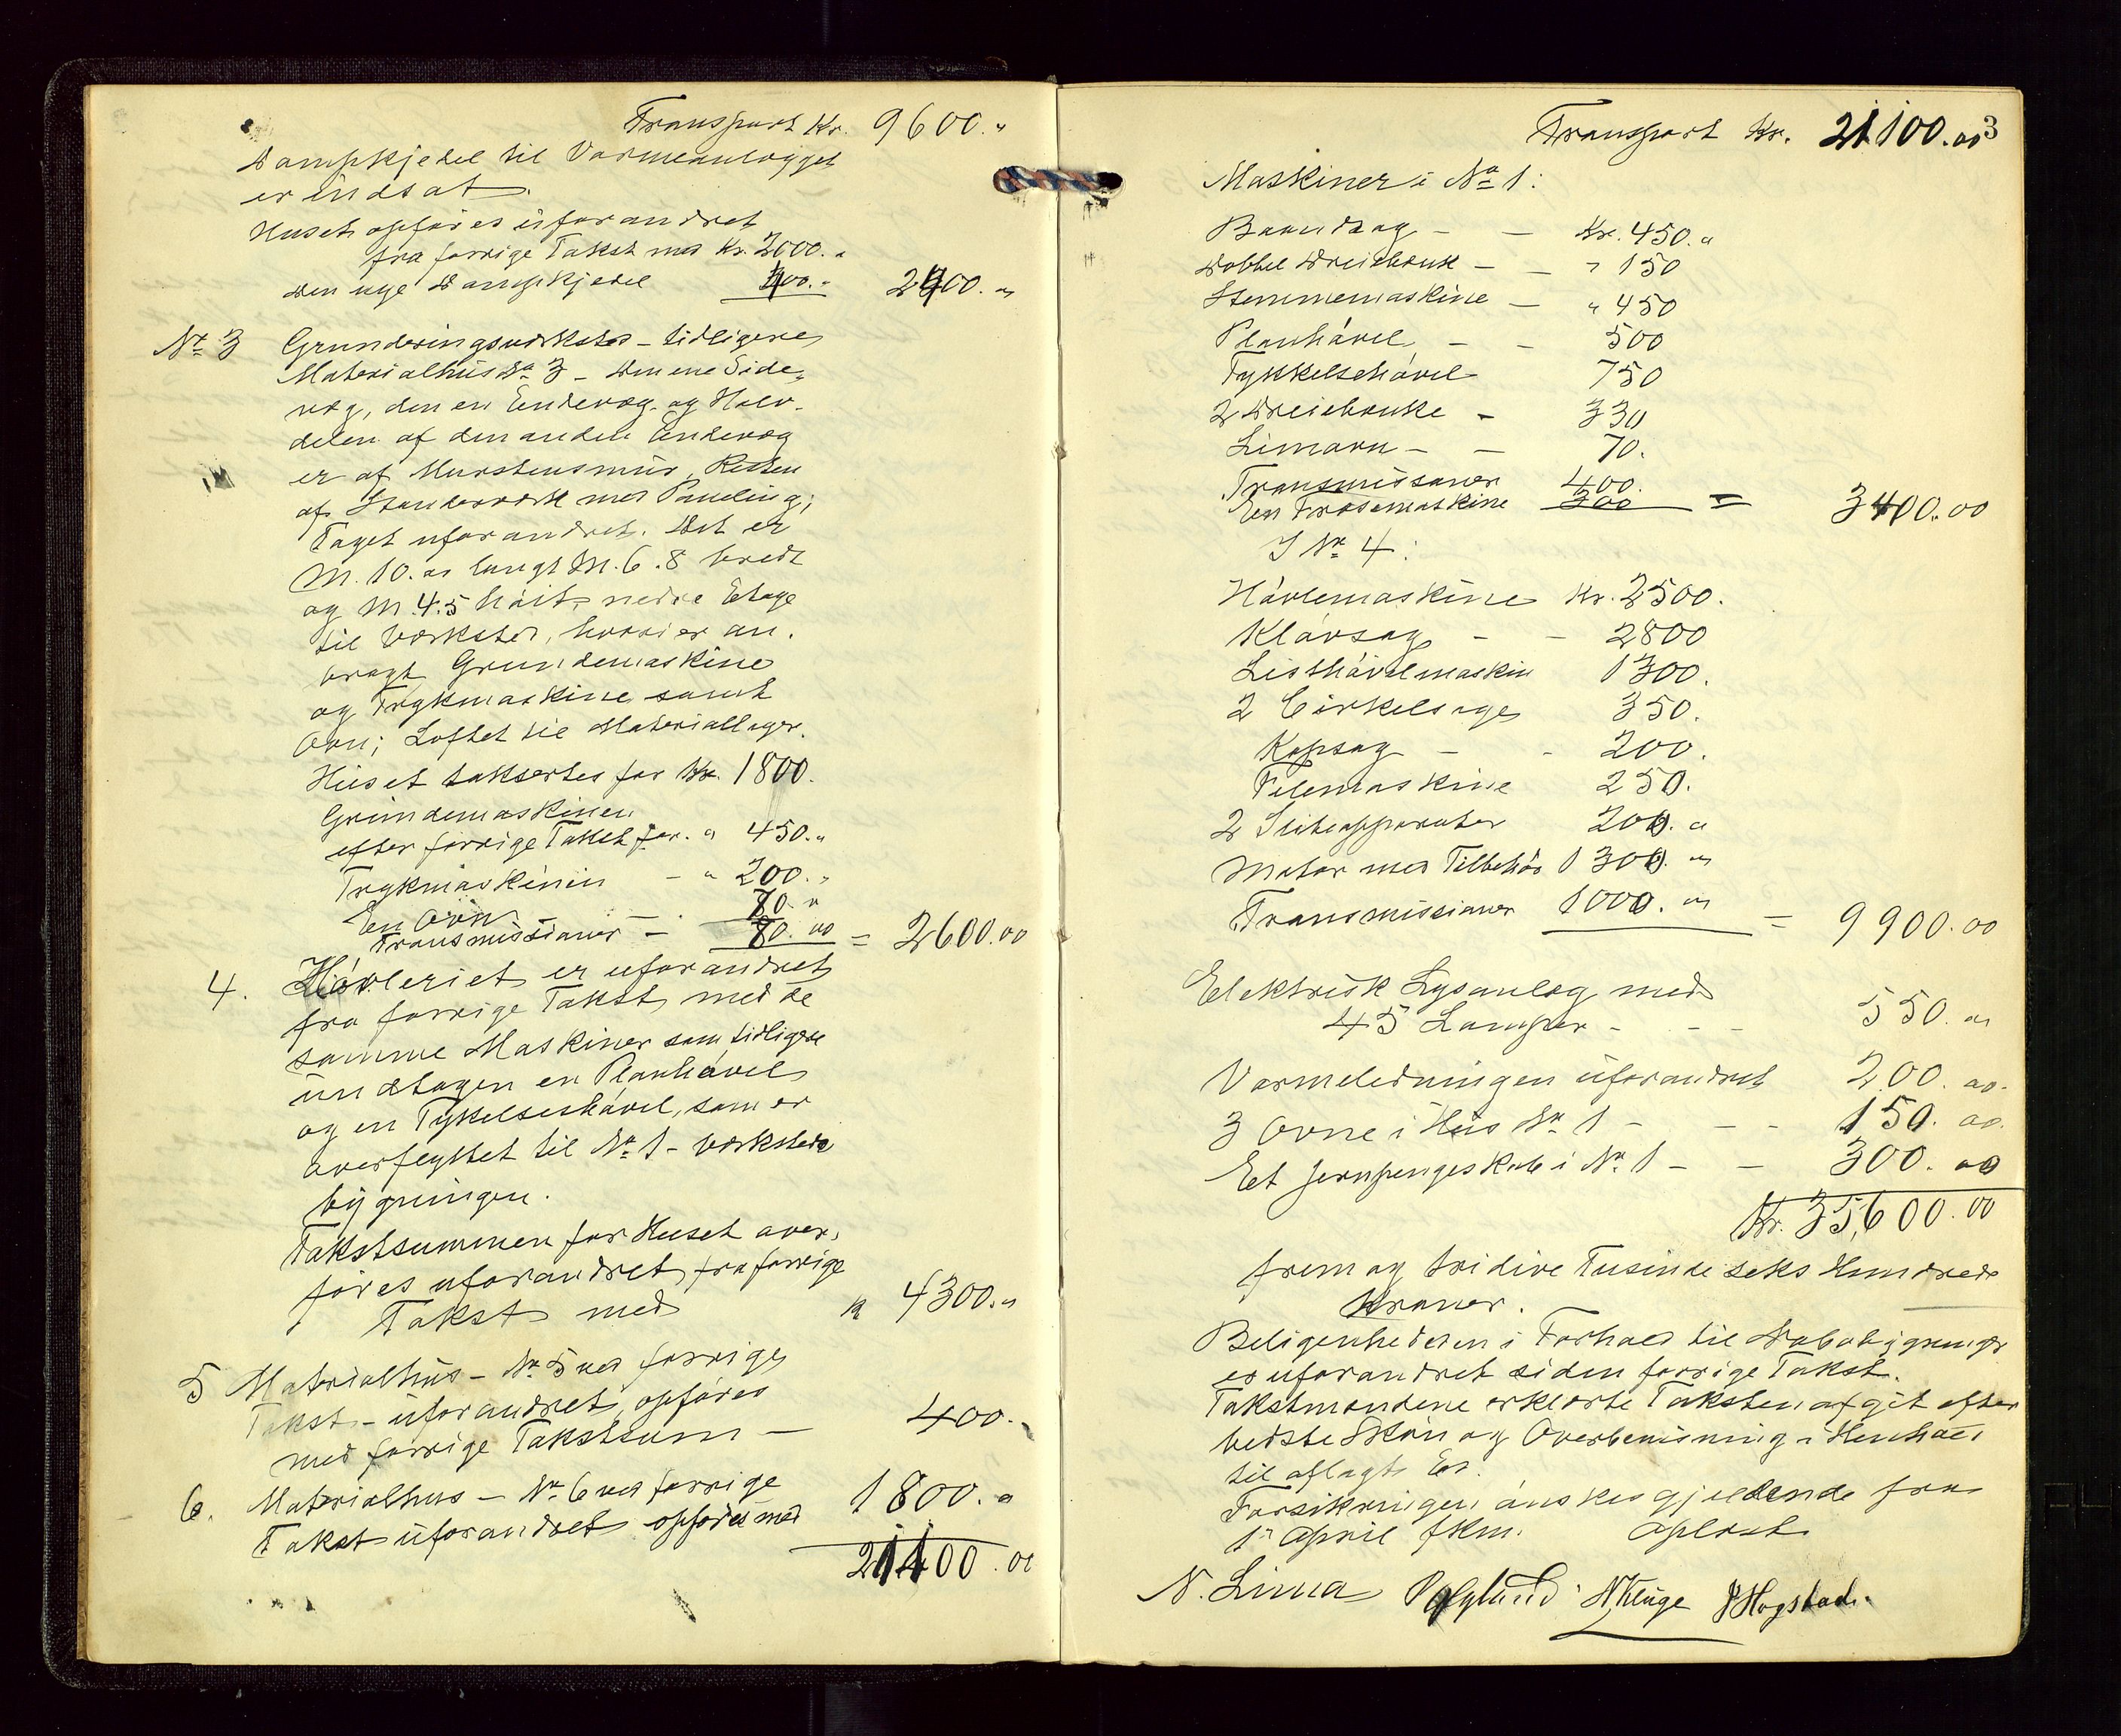 Transport Kr. 9600.„
Dampkjedel til Varmeanlægget
er indsat.
Huset opføres uforandret
fra forrige Takst med Kr. 2000.„
den nye Dampkjedel 400.„ 2400.„
No 3 Grunderingsværksted - tidligere
Materialhus No 3 - Den ene Side-
væg, den en Endevæg og Halv-
delen af den anden Endevæg
er af Murstensmur, Resten
af Standerværk med Paneling;
Taget uforandret. Det er
M. 10.00 langt M. 6.8 bredt
og M. 4.5 høit, nedre Etage
til Værksted, hvori er an-
bragt Grundemaskine
og Trykmaskine samt
Ovn; Loftet til Materiallager.
Huset taksertes for Kr. 1800.
Grundemaskinen
efter forrige Takst for „ 450.„
Trykmaskinin - „ 200.„
En Ovn - 70.„
Transmissioner - 80.00 = 2600.00
4. Høvleriet er uforandret
fra forrige Takst med de
samme Maskiner som tidligere
undtagen en Planhøvel
og en Tykelseshøvel, som er
overflyttet til No 1 - Værksteds
bygningen.
Takstsummen for Huset over-
føres uforandret fra forrige
Takst med 4300.„
5 Materialhus - No 5 ved forrige
Takst - uforandret, opføres
med forrige Takstsum - 400.„
6. Materialhus - No 6 ved forrige
Takst uforandret opføres med 1800.„
21100.00
3
Transport Kr. 21100.00
Maskiner i No 1:
Baandsag - - Kr. 450.„
Dobbel Dreiebænk - - „ 150
Stemmemaskine - „ 450
Planhøvel - - 500
Tykkelsehøvel 750
2 Dreiebænke - 330
Limovn - - 70.
Transmissioner 400.
En Fræsemaskine 300 = 3400.00
I No 4:
Høvlemaskine Kr. 2500.
Kløvsag - - 2800
Listhøvelmaskin 1300.
2 Cirkelsage 350.
Kapsag - - 200.
Filemaskine 250.
2 Slibeapparater 200.„
Motor med Tilbehør 1300.„
Transmissioner 1000.„ = 9900.00
Elektrisk Lysanlæg med
45 Lamper - - - 550.00
Varmeledningen uforandret 200.00
3 Ovne i Hus No 1 - - - 150.00
Et Jernpengeskab i No 1 - - 300.00
Kr. 35,600.00
frem og tridive Tusinde seks Hundrede
Kroner.
Beligenheden i Forhold til Nabobygninger
er uforandret siden forrige Takst.
Takstmændene erklærte Taksten afgit efter
bedste Skøn og Overbevisning i Henhold
til aflagt Ed.
Forsikringen ønskes gjeldende fra
1ste April fkm. Oplæst
N. Lima N Kluge Hogstad.